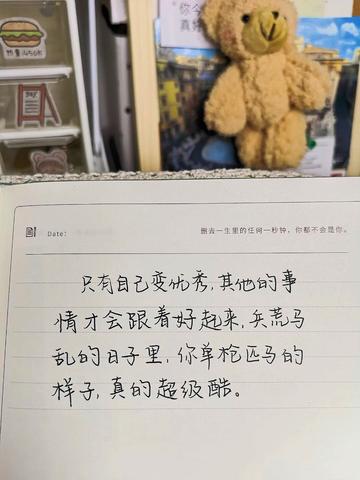 你今
真好
热量:450K
Date:
删去一生里的任何一秒钟，你都不会是你。
只有自己变优秀,其他的事
情才会跟着好起来,兵荒马
乱的日子里,你单枪匹马的
样子,真的超级酷。